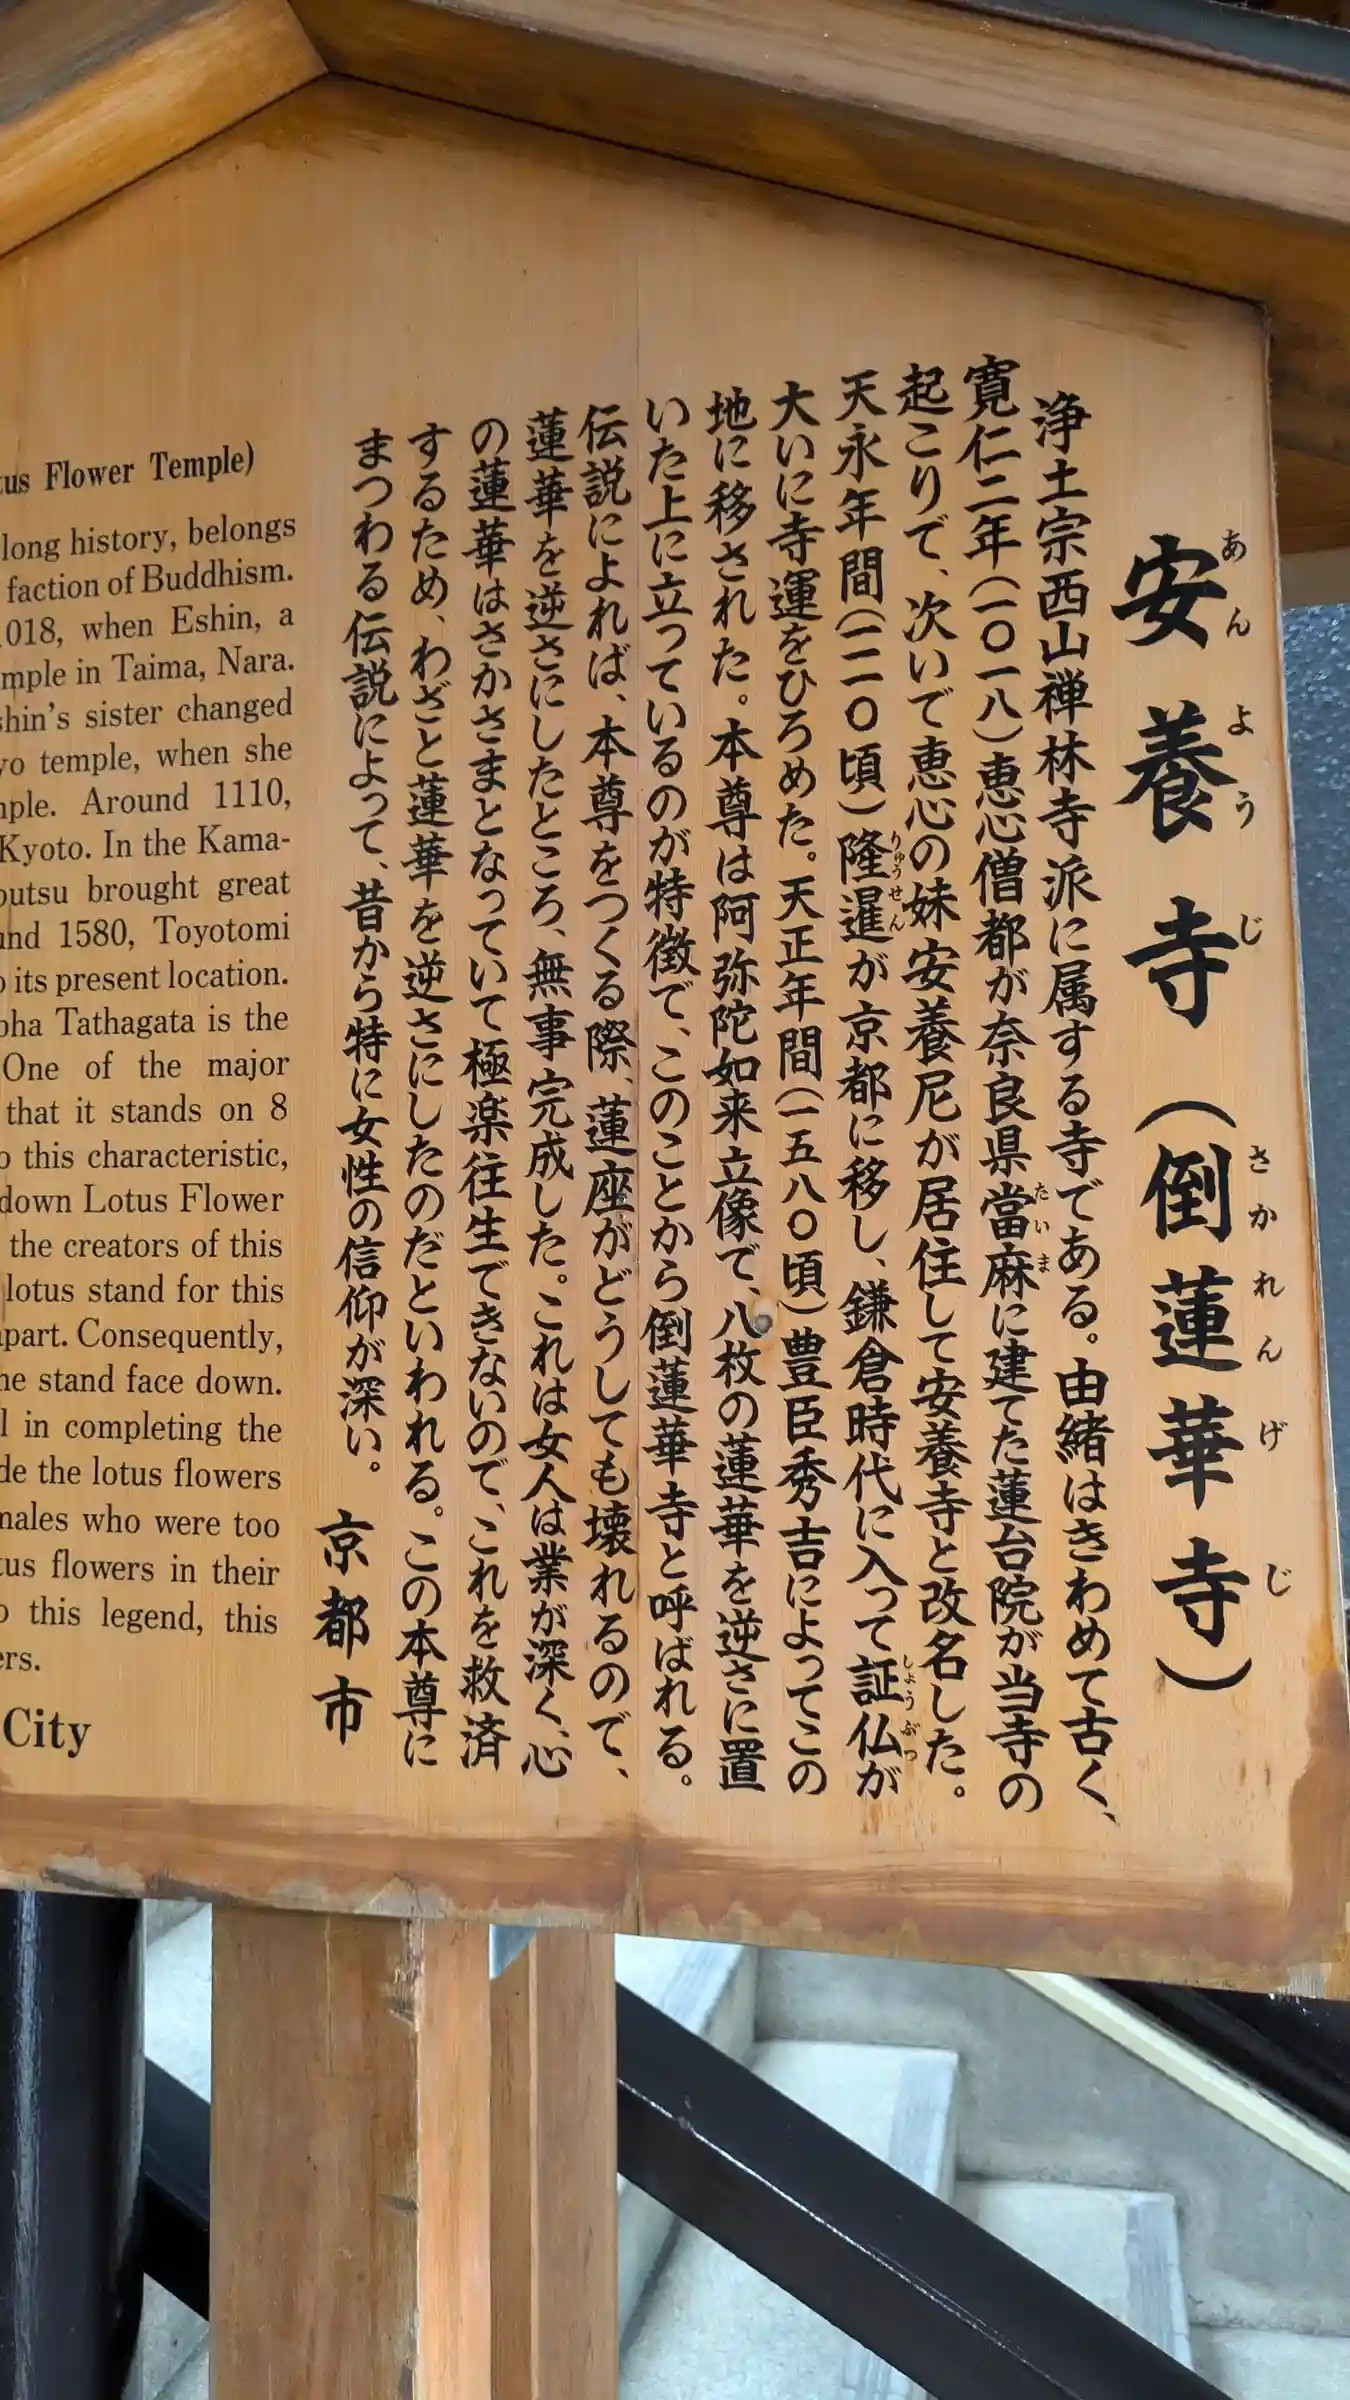 安養寺(倒蓮華寺)
あんようじ さかれんげじ
浄土宗西山禅林寺派に属する寺である。由緒はきわめて古く、
寛仁二年(一〇一八)恵心僧都が奈良県當麻に建てた蓮台院が当寺の
たいま
起こりで、次いで恵心の妹安養尼が居住して安養寺と改名した。
天永年間(一一一〇頃)隆暹が京都に移し、鎌倉時代に入って証仏が
りゅうせん しょうぶつ
大いに寺運をひろめた。天正年間(一五八〇頃)豊臣秀吉によってこの
地に移された。本尊は阿弥陀如来立像で、八枚の蓮華を逆さに置
いた上に立っているのが特徴で、このことから倒蓮華寺と呼ばれる。
伝説によれば、本尊をつくる際、蓮座がどうしても壊れるので、
蓮華を逆さにしたところ、無事完成した。これは女人は業が深く、心
の蓮華はさかさまとなっていて極楽往生できないので、これを救済
するため、わざと蓮華を逆さにしたのだといわれる。この本尊に
まつわる伝説によって、昔から特に女性の信仰が深い。
京都市
tus Flower Temple)
long history, belongs
faction of Buddhism.
1018, when Eshin, a
mple in Taima, Nara.
shin's sister changed
yo temple, when she
mple. Around 1110,
Kyoto. In the Kama-
outsu brought great
und 1580, Toyotomi
o its present location.
bha Tathagata is the
One of the major
that it stands on 8
o this characteristic,
down Lotus Flower
the creators of this
lotus stand for this
apart. Consequently,
he stand face down.
l in completing the
de the lotus flowers
males who were too
tus flowers in their
o this legend, this
ers.
City